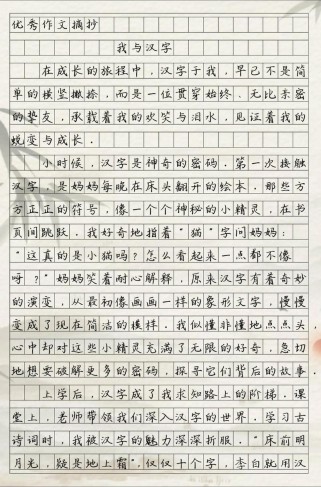 优秀作文摘抄
我与汉字
在成长的旅程中，汉字于我，早已不是简
单的横竖撇捺，而是一位贯穿始终、无比亲密
的挚友，承载着我的欢笑与泪水，见证着我的
蜕变与成长．
小时候，汉字是神奇的密码．第一次接触
汉字，是妈妈每晚在床头翻开的绘本，那些方
方正正的符号，像一个个神秘的小精灵，在书
页间跳跃．我好奇地指着"猫"字问妈妈：
"这真的是小猫吗？怎么看起来一点都不像
呀？"妈妈笑着耐心解释，原来汉字有着奇妙
的演变，从最初像画画一样的象形文字，慢慢
变成了现在简洁的模样．我似懂非懂地点点头，
心中却对这些小精灵充满了无限的好奇，急切
地想要破解更多的密码，探寻它们背后的故事．
上学后，汉字成了我求知路上的阶梯．课
堂上，老师带领我们深入汉字的世界．学习古
诗词时，我被汉字的魅力深深折服．"床前明
月光，疑是地上霜"，仅仅十个字，李白就用汉